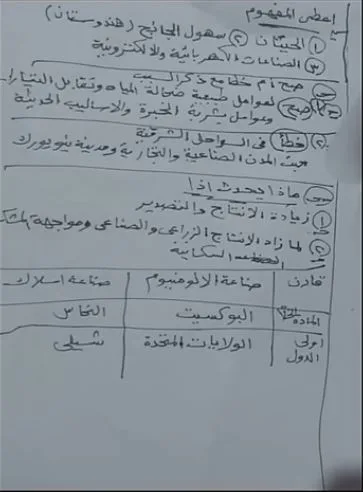 اعطى المفهوم
① الجيتان ② سهول الجانج (هندوستان)
③ الصناعات الكهربائية والالكترونية
صح أم خطأ مع ذكر السبب
① صح لعوامل طبيعية ضحالة المياه وتقابل التيارات
وعوامل بشرية الخبرة والاساليب الحديثة
② خطأ فى السواحل الشرقية
حيث المدن الصناعية والتجارية ومدينة نيويورك
ماذا يحدث اذا
① زيادة الانتاج والتصدير
② لما زاد الانتاج الزراعى والصناعى ومواجهة المشك
السكانية
قارن صناعة الالومنيوم صناعة اسلاك
المادة البوكسيت النحاس
اولى الدول الولايات المتحدة شيلى